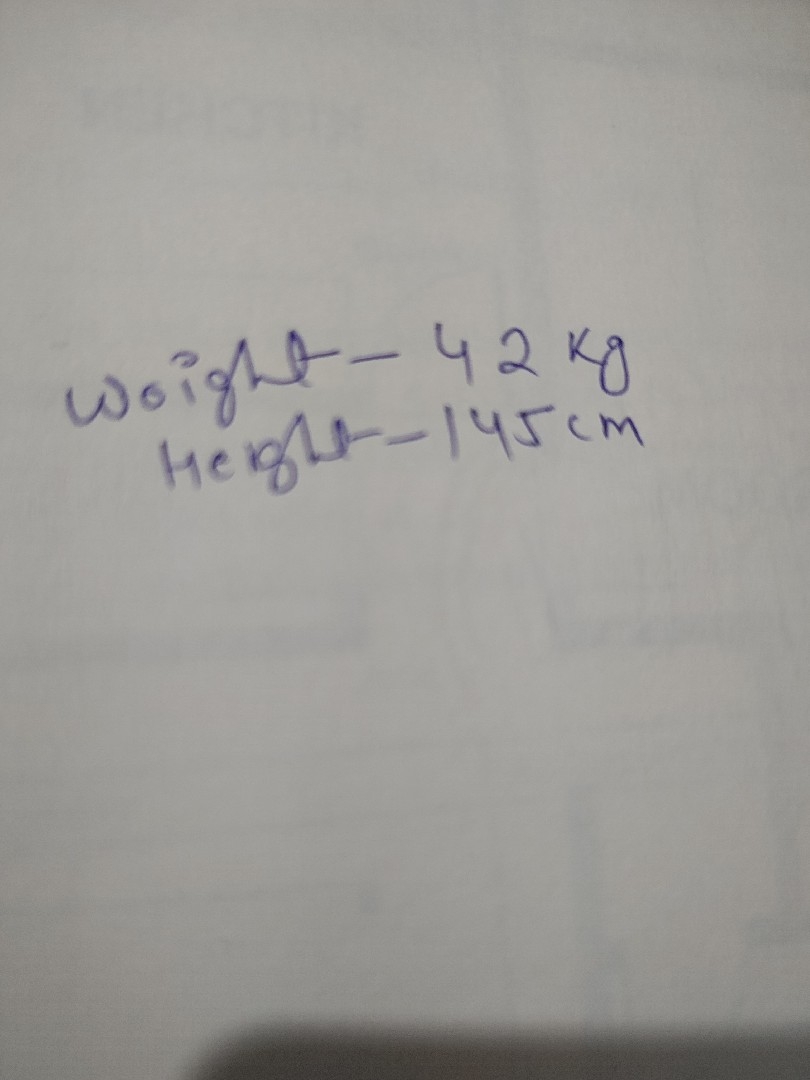 Weight - 42 kg
Height - 145 cm